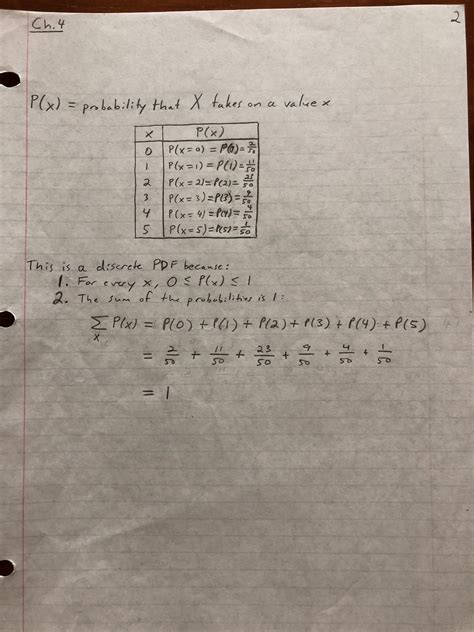 Ch.4
2
P(x) = probability that X takes on a value x
x P(x)
0 P(x=0) = P(0) = 2/50
1 P(x=1) = P(1) = 11/50
2 P(x=2) = P(2) = 23/50
3 P(x=3) = P(3) = 9/50
4 P(x=4) = P(4) = 4/50
5 P(x=5) = P(5) = 1/50
This is a discrete PDF because:
1. For every x, 0 ≤ P(x) ≤ 1
2. The sum of the probabilities is 1:
∑ₓ P(x) = P(0) + P(1) + P(2) + P(3) + P(4) + P(5)
= 2/50 + 11/50 + 23/50 + 9/50 + 4/50 + 1/50
= 1